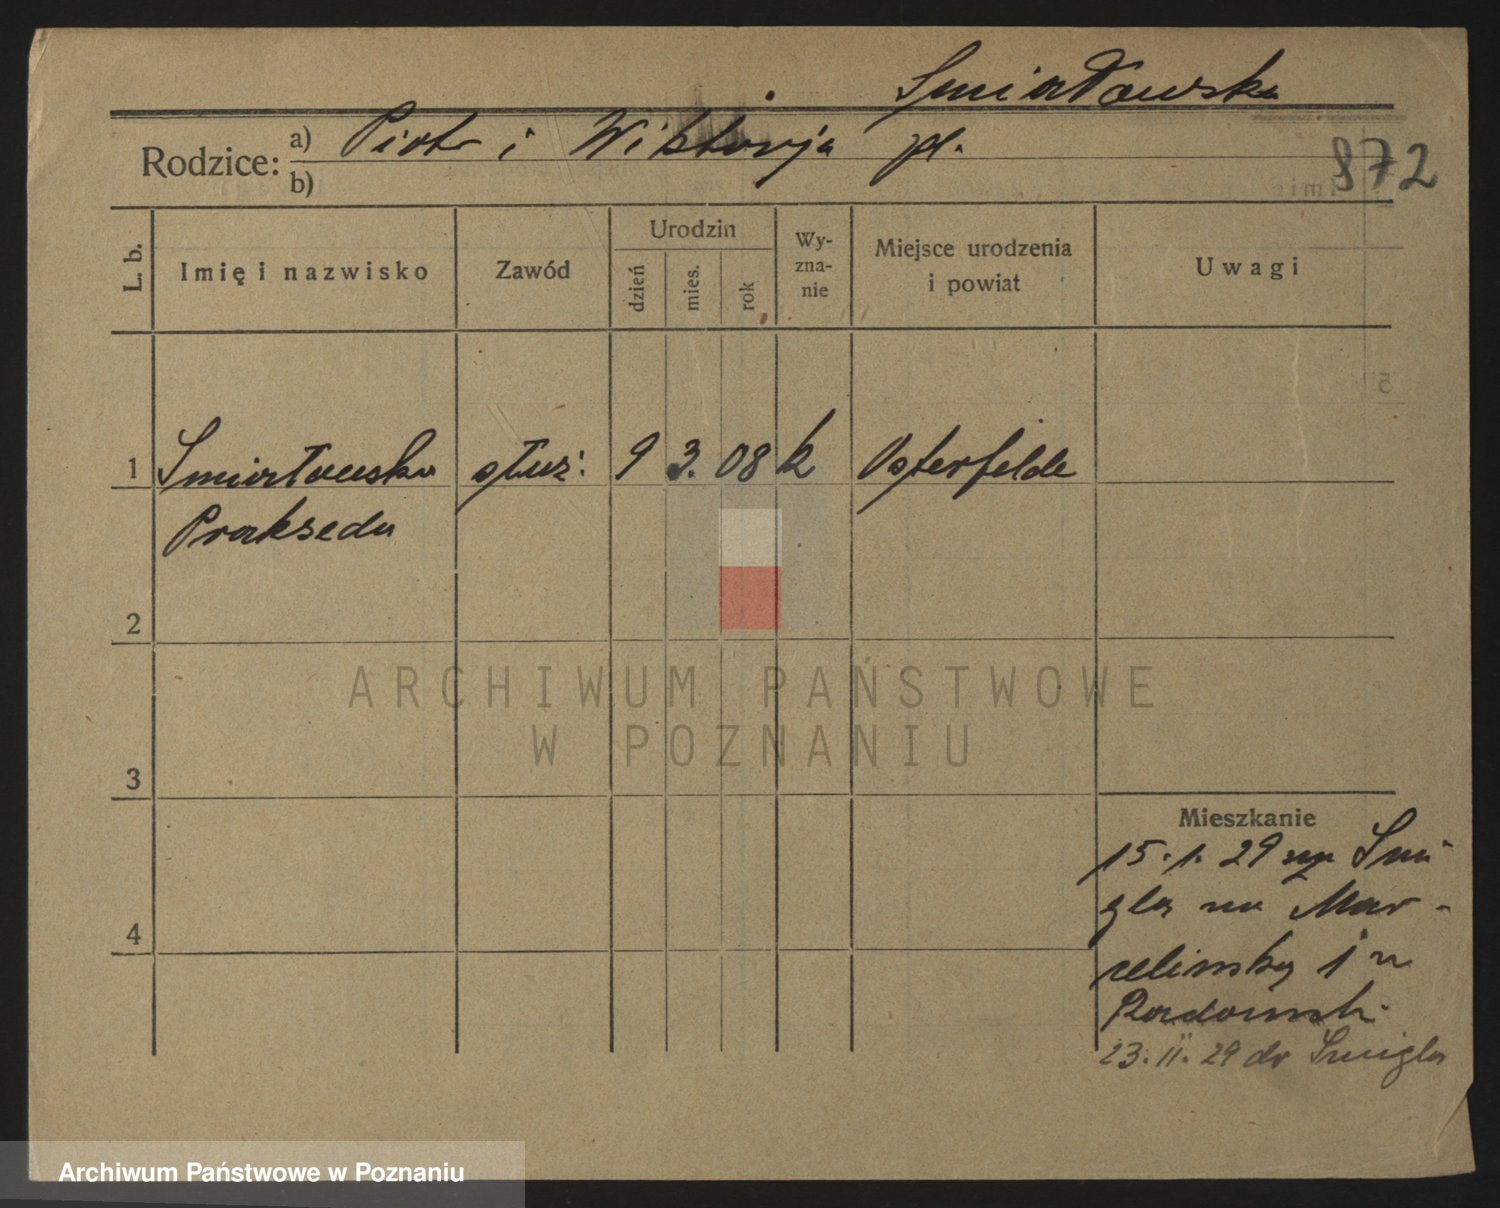 Smiałowska
Rodzice: a) Piotr i Wiktorja pl.
b)
872
L. b.
Imię i nazwisko
Zawód
Urodzin
dzień
mies.
rok
Wy-
zna-
nie
Miejsce urodzenia
i powiat
Uwagi
1 Smiałowska służ. 9 3. 08 k Osterfelde
Prakseda
2
3
4
Mieszkanie
15. 1. 29 Smi
gla na Mar-
celinsky 1
Radomsk
23. II. 29 do Smigla
ARCHIWUM PAŃSTWOWE
W POZNANIU
Archiwum Państwowe w Poznaniu